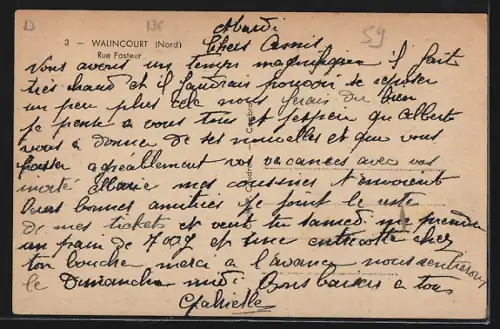 D
136
59
3 - WALINCOURT (Nord)
Rue Pasteur
Mardi
Chers Amis
Vous avons un temps magnifique il fait
très chaud et il faudrait pouvoir se reposer
un peu plus cela nous ferais du bien
je pense a vous tous et j'espère qu'Albert
vous a donné de ses nouvelles et que vous
passer agréablement vos vacances avec vos
Marie mes cousines t'envoient
leurs bonnes amitiés je joint le reste
de mes tickets et veut tu samedi me prendre
un pain de 700g et une entrecôte chez
ton boucher merci a l'avance nous rentrerons
le Dimanche midi Bons baisers a tous
Gabrielle